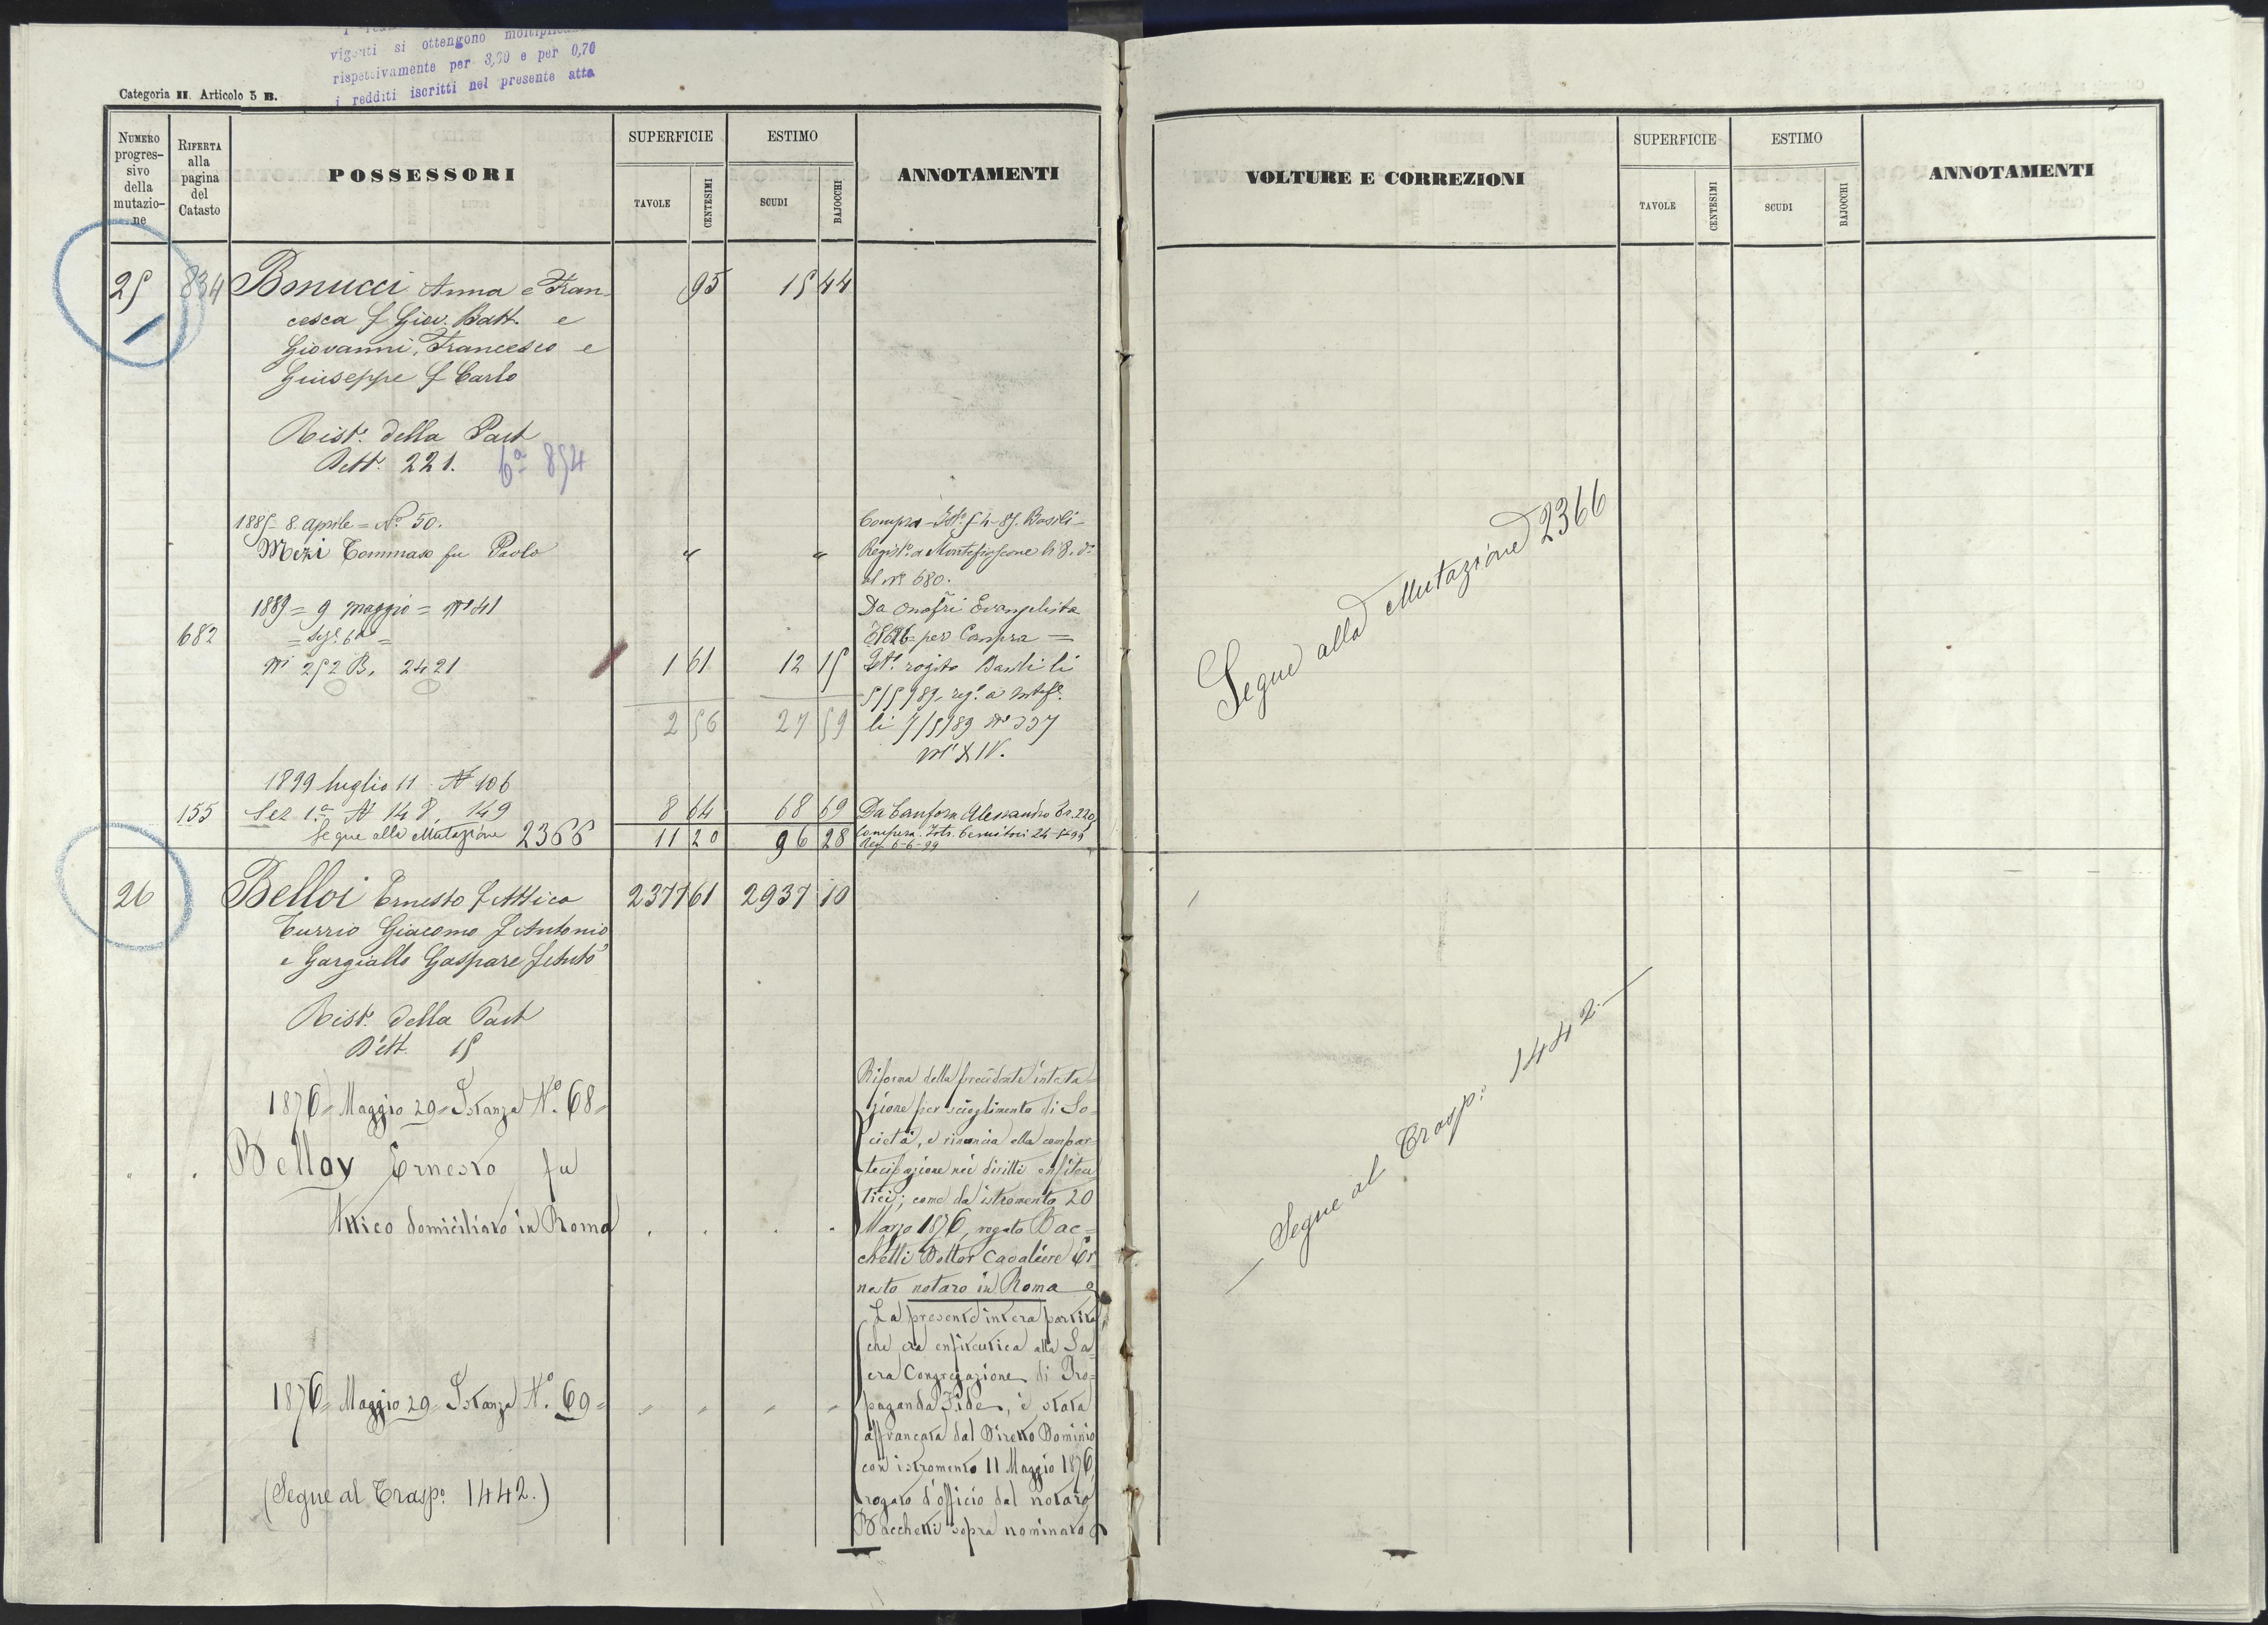 vigenti si ottengono
rispettivamente per 3,00 e per 0,70
i redditi iscritti nel presente atto
Categoria II. Articolo 5 B.
NUMERO progres-sivo della mutazio-ne
RIFERTA alla pagina del Catasto
POSSESSORI
SUPERFICIE
TAVOLE
CENTESIMI
ESTIMO
SCUDI
BAJOCCHI
ANNOTAMENTI
25 834 Bonucci Anna e Fran- 95 15 44
cesca f Giov. Batt. e
Giovanni, Francesco e
Giuseppe f Carlo
Rist. della Part
Dett. 221. 6a 854
1885 8 aprile = No. 50.
Mezi Tommaso fu Paolo " "
Compra - Isto. 5-4-85. Basili-
Registo. a Montefiascone li 8. do.
al No. 680.
1889 = 9 maggio = No 41
682
Ni 252 B, 2421 1 61 12 15
2 56 27 59
Da Onofri Evangelista
per Compra =
Isto. rogito Basili li
5/5/89, rego. a Mtefe.
li 7/5/89 No 337
XIV.
1899 luglio 11 N 106
155 Sez 1.a N 148, 149 8 64 68 69 Da Canfora Alessandro Tr. 220
Segue alla Mutazione 2366 11 20 96 28
Reg. 6-6-99
26 Belloi Ernesto f Attico 2377 61 2937 10
Currio Giacomo f Antonio
e Gargiallo Gaspare f
Rist. della Part
Dett. 15
1876 = Maggio 29 = Istanza No. 68 =
Belloy Ernesto fu
Attico domiciliato in Roma
Riforma della precedente intesta-
zione per scioglimento di So-
cietà, e rinuncia alla compar-
tecipazione nei diritti enfiteu
tici; come da istromento 20
Marzo 1876, rogato Bac-
chetti Dottor Cavaliere Er
nesto notaro in Roma
1876 = Maggio 29 = Istanza No. 69 =
La presente intera partita
che era enfiteutica alla Sa-
cra Congregazione di Pro-
paganda Fide, è stata
affrancata dal Diretto Dominio
con istromento 11 Maggio 1876,
rogato d'officio dal notaro
Bacchetti sopra nominato
(Segue al Traspo. 1442.)
VOLTURE E CORREZIONI
SUPERFICIE
TAVOLE
CENTESIMI
ESTIMO
SCUDI
BAJOCCHI
ANNOTAMENTI
Segue alla Mutazione 2366
— Segue al Trasp: 1442. —